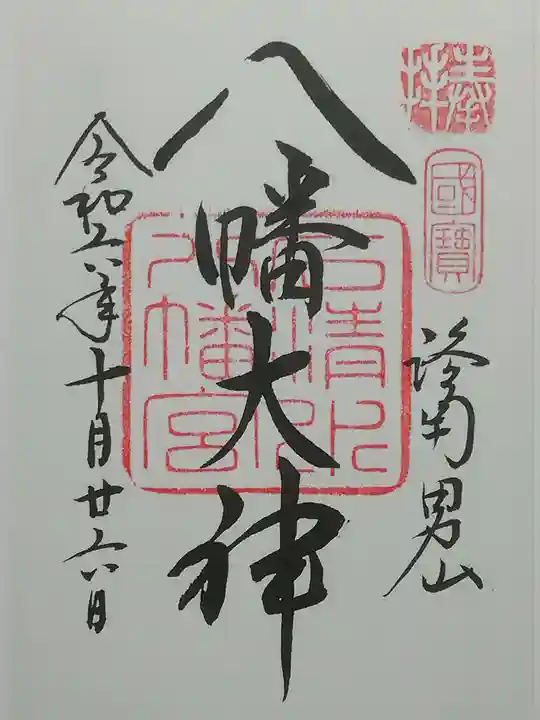 奉拝
國寶
洛南 男山
八幡大神
石清水八幡宮
令和六年十月廿六日